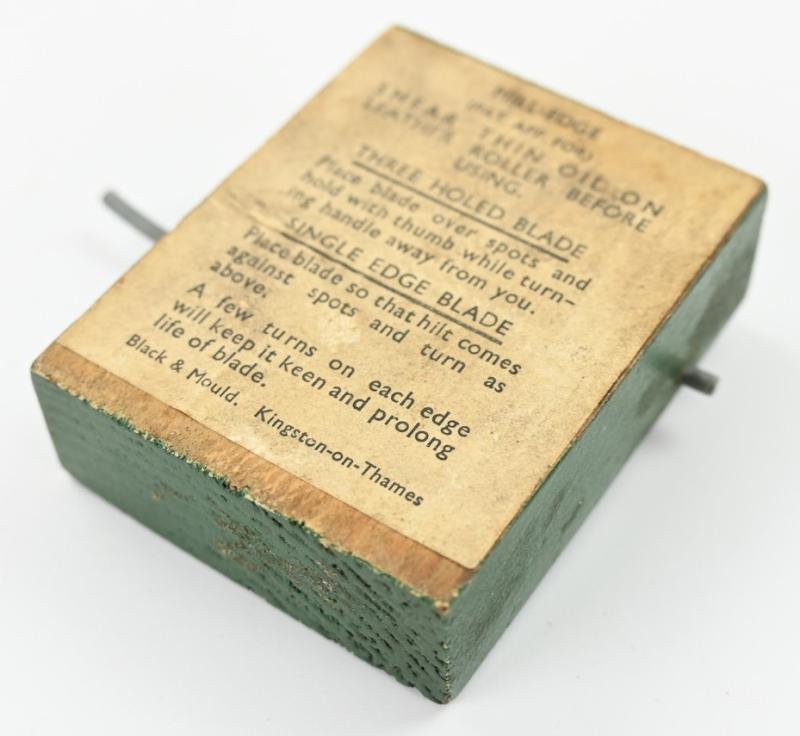 MILL-EDGE
(PAT. APP. FOR)
SMEAR THIN OIL ON
LEATHER ROLLER BEFORE
USING.
THREE HOLED BLADE
Place blade over spots and
hold with thumb while turn-
ing handle away from you.
SINGLE EDGE BLADE
Place blade so that hilt comes
against spots and turn as
above.
A few turns on each edge
will keep it keen and prolong
life of blade.
Black & Mould. Kingston-on-Thames